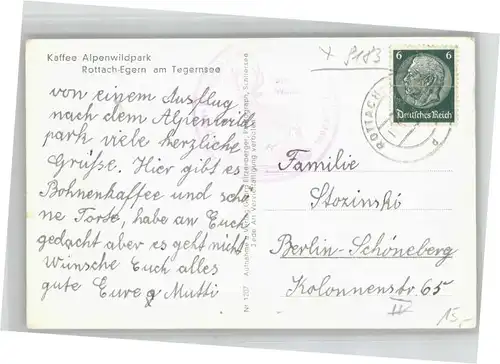 Kaffee Alpenwildpark
Rottach-Egern am Tegernsee
von einem Ausflug
nach dem Alpenwild
park viele herzliche
Grüsse. Hier gibt es
Bohnenkaffee und schö
ne Torte, habe an Euch
gedacht aber es geht nicht
Wünsche Euch alles
gute Eure Mutti
Nr. 1207
Jede Art Vervielfältigung verboten
x 9183
6 6
Deutsches Reich
ROTTACH
Familie
Stozinski
Berlin-Schöneberg
Kolonnenstr. 65
II
15,-